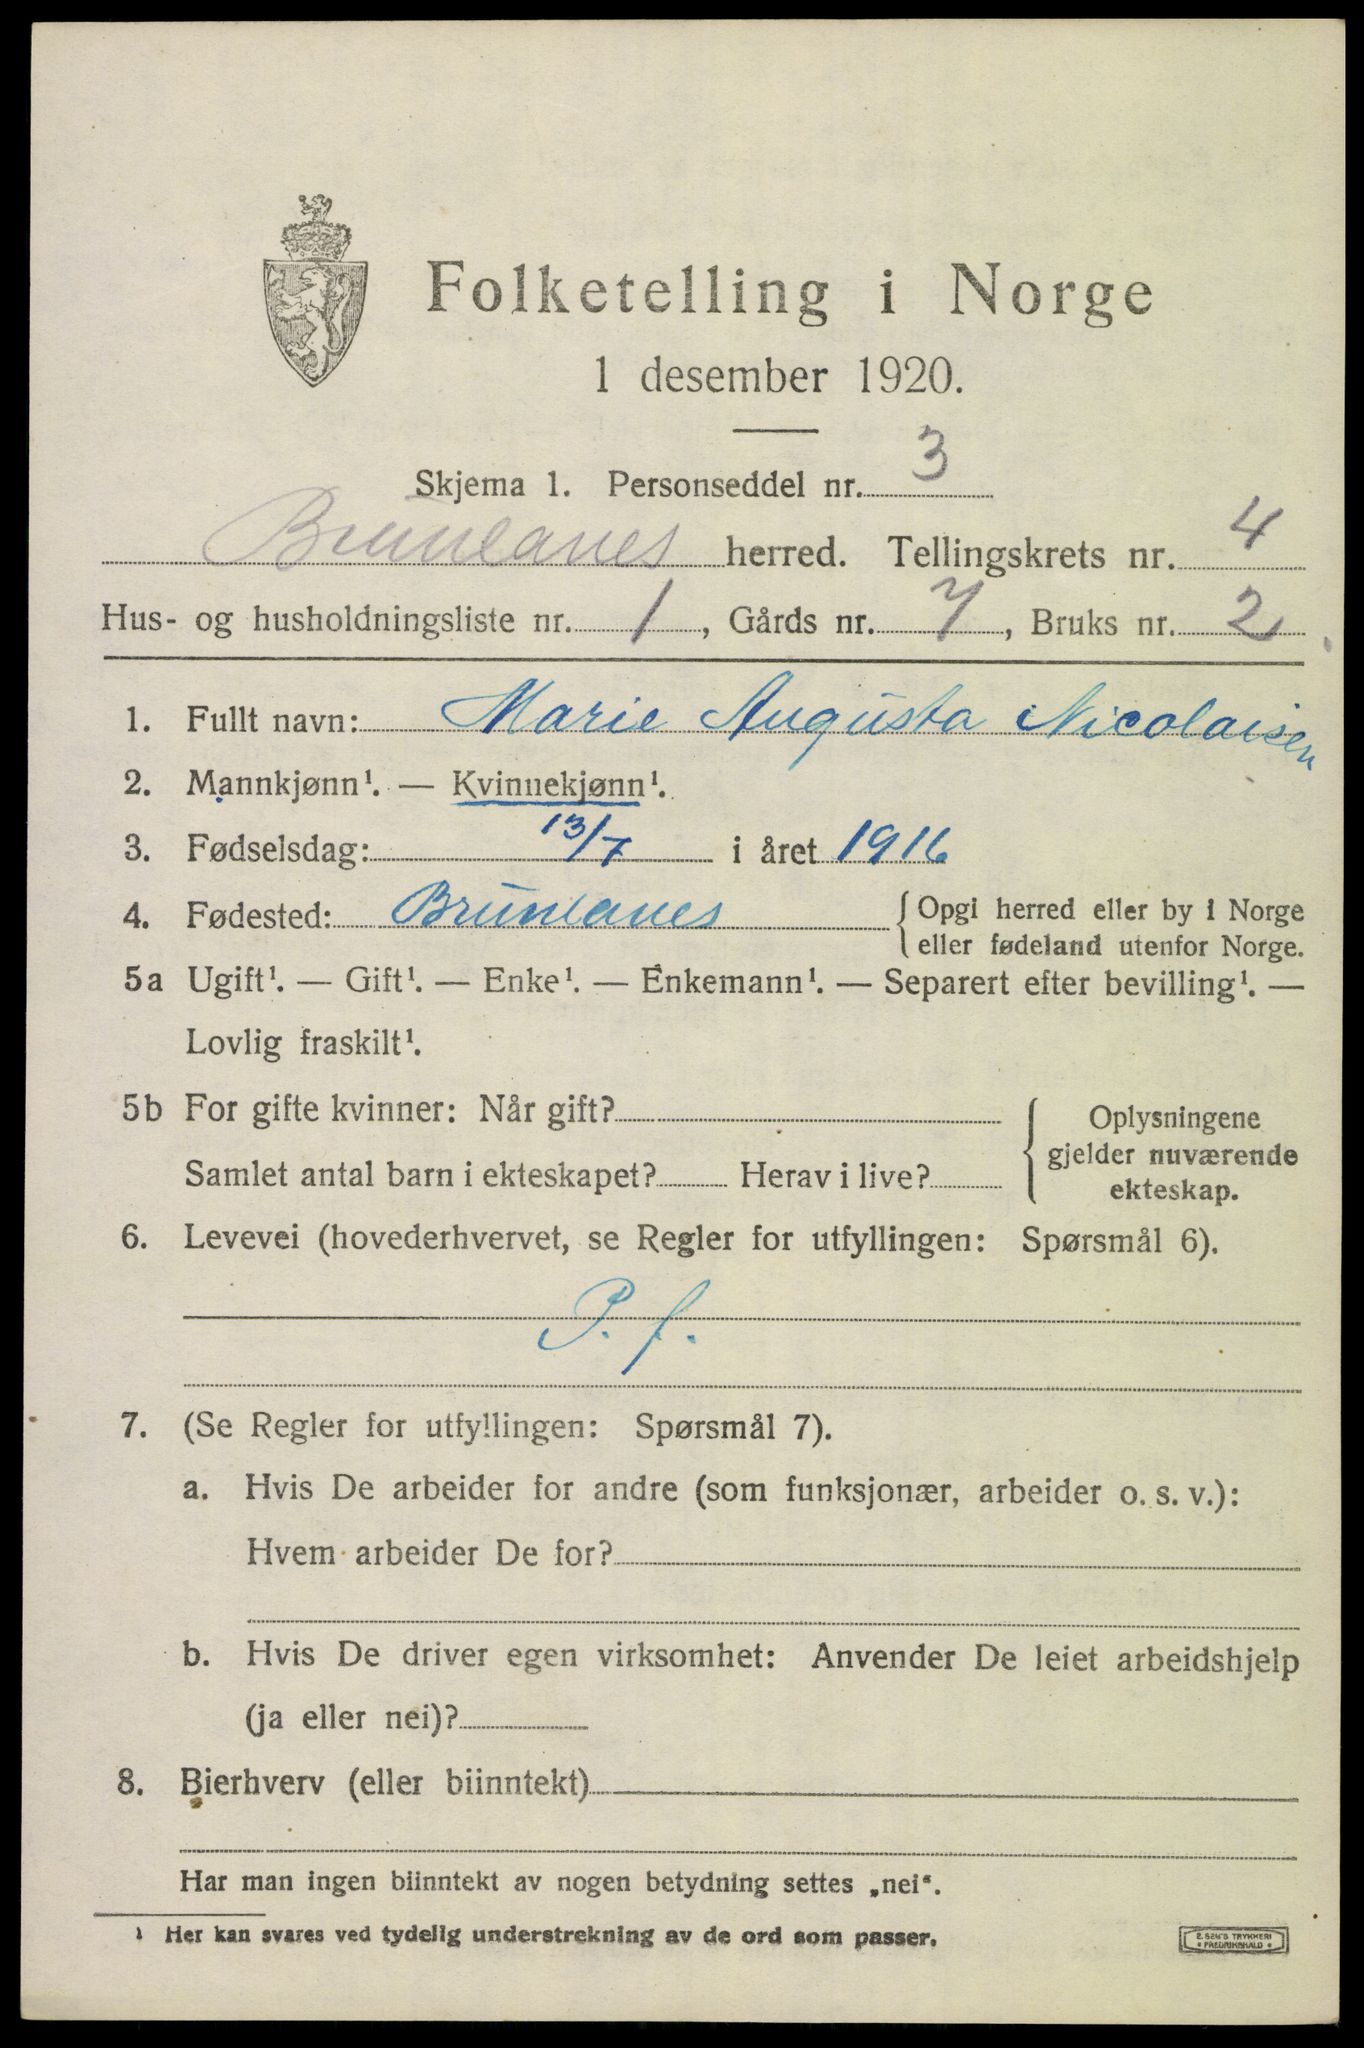 Folketelling i Norge
1 desember 1920.
Skjema 1. Personseddel nr. 3
Brunlanes herred. Tellingskrets nr. 4
Hus- og husholdningsliste nr. 1, Gårds nr. 7, Bruks nr. 2
1. Fullt navn: Marie Augusta Nicolaisen
2. Mannkjønn¹. — Kvinnekjønn¹.
3. Fødselsdag: 13/7 i året 1916
4. Fødested: Brunlanes { Opgi herred eller by i Norge
eller fødeland utenfor Norge.
5a Ugift¹. — Gift¹. — Enke¹. — Enkemann¹. — Separert efter bevilling¹. —
Lovlig fraskilt¹.
5b For gifte kvinner: Når gift?
Samlet antal barn i ekteskapet? Herav i live?
Oplysningene
gjelder nuværende
ekteskap.
6. Levevei (hovederhvervet, se Regler for utfyllingen: Spørsmål 6).
P. f.
7. (Se Regler for utfyllingen: Spørsmål 7).
a. Hvis De arbeider for andre (som funksjonær, arbeider o. s. v.):
Hvem arbeider De for?
b. Hvis De driver egen virksomhet: Anvender De leiet arbeidshjelp
(ja eller nei)?
8. Bierhverv (eller biinntekt)
Har man ingen biinntekt av nogen betydning settes „nei“.
¹ Her kan svares ved tydelig understrekning av de ord som passer.
E. SEM'S TRYKKERI
FREDRIKSHALD